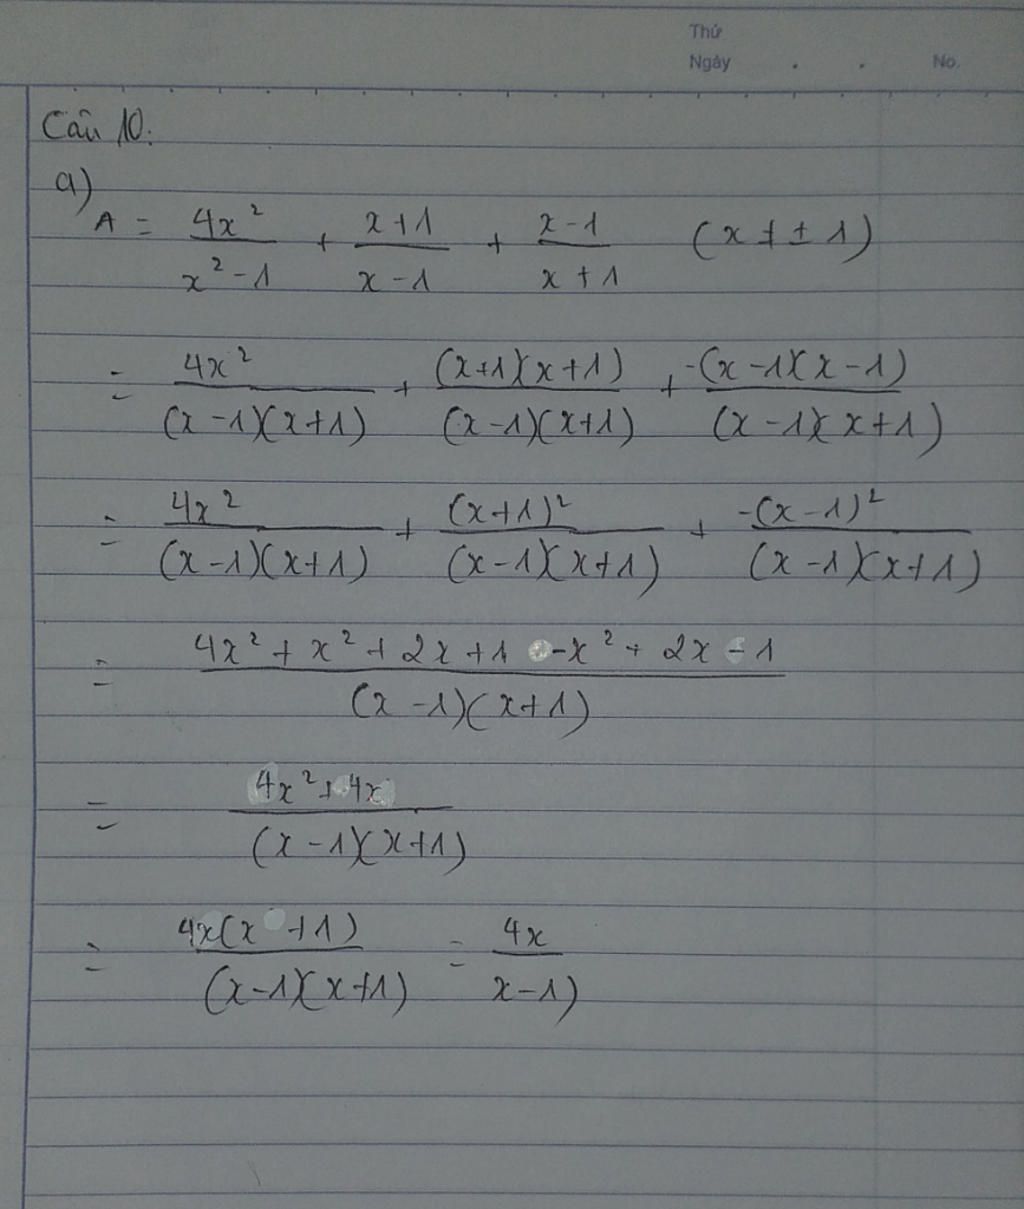 Thứ
Ngày . . No.
Câu 10:
a)
A = 4x²/(x²-1) + (x+1)/(x-1) + (x-1)/(x+1) (x ≠ ± 1)
= 4x²/((x-1)(x+1)) + (x+1)(x+1)/((x-1)(x+1)) + -(x-1)(x-1)/((x-1)(x+1))
= 4x²/((x-1)(x+1)) + (x+1)²/((x-1)(x+1)) + -(x-1)²/((x-1)(x+1))
= (4x² + x² + 2x + 1 - x² + 2x - 1)/((x-1)(x+1))
= (4x² + 4x)/((x-1)(x+1))
= 4x(x+1)/((x-1)(x+1)) = 4x/(x-1)